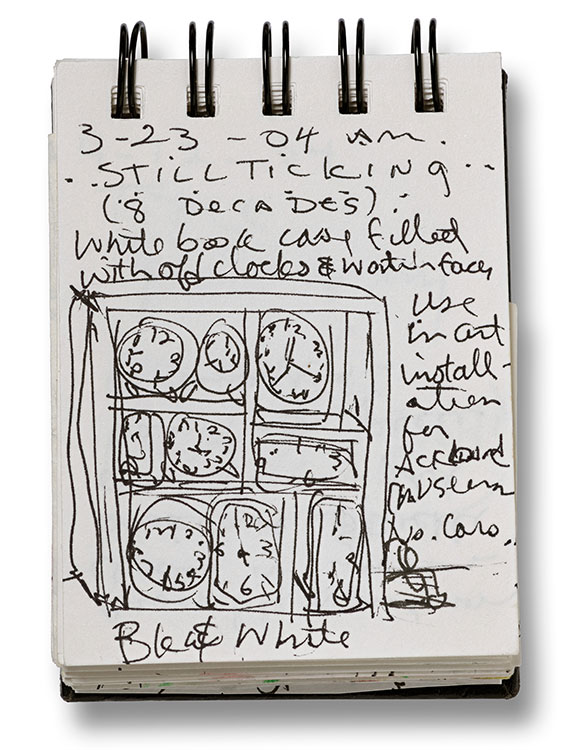 3-23-04 am.
..STILL TICKING..
(8 DECADES).
White book case filled
with old clocks & watch faces
Use
in art
install-
ation
for
Ackland
museum
No. Caro..
Blk & White